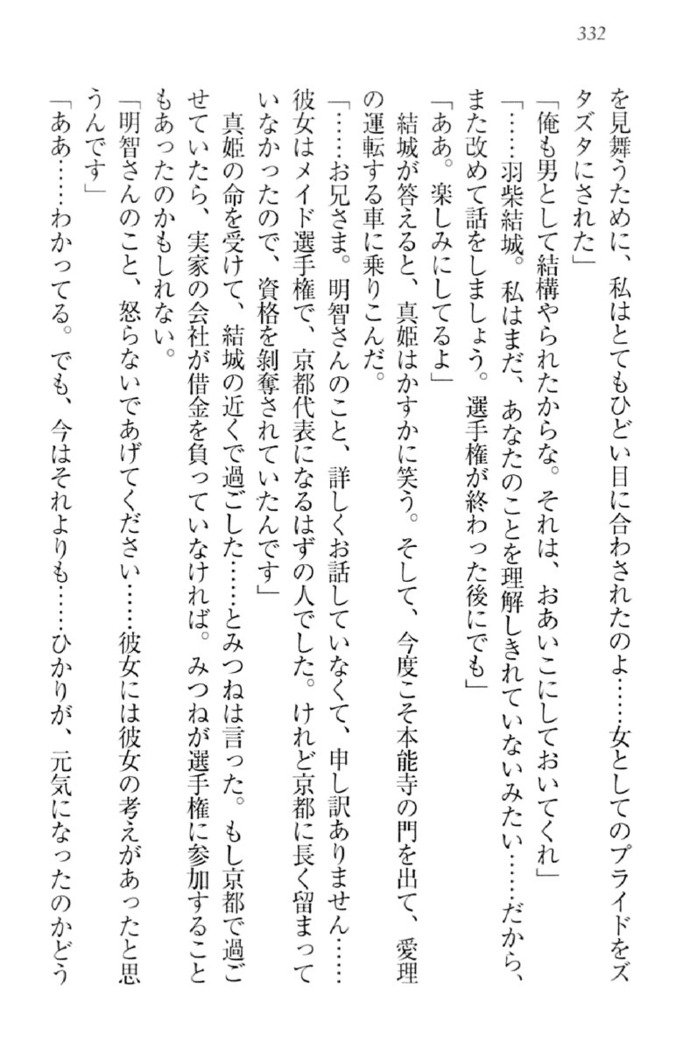 332
を見舞うために、私はとてもひどい目に合わされたのよ……女としてのプライドをズ
タズタにされた」
「俺も男として結構やられたからな。それは、おあいこにしておいてくれ」
「……羽柴結城。私はまだ、あなたのことを理解しきれていないみたい……だから、
また改めて話をしましょう。選手権が終わった後にでも」
「ああ。楽しみにしてるよ」
結城が答えると、真姫はかすかに笑う。そして、今度こそ本能寺の門を出て、愛理
の運転する車に乗りこんだ。
「……お兄さま。明智さんのこと、詳しくお話していなくて、申し訳ありません……
彼女はメイド選手権で、京都代表になるはずの人でした。けれど京都に長く留まって
いなかったので、資格を剝奪されていたんです」
真姫の命を受けて、結城の近くで過ごした……とみつねは言った。もし京都で過ご
せていたら、実家の会社が借金を負っていなければ。みつねが選手権に参加すること
もあったのかもしれない。
「明智さんのこと、怒らないであげてください……彼女には彼女の考えがあったと思
うんです」
「ああ……わかってる。でも、今はそれよりも……ひかりが、元気になったのかどう